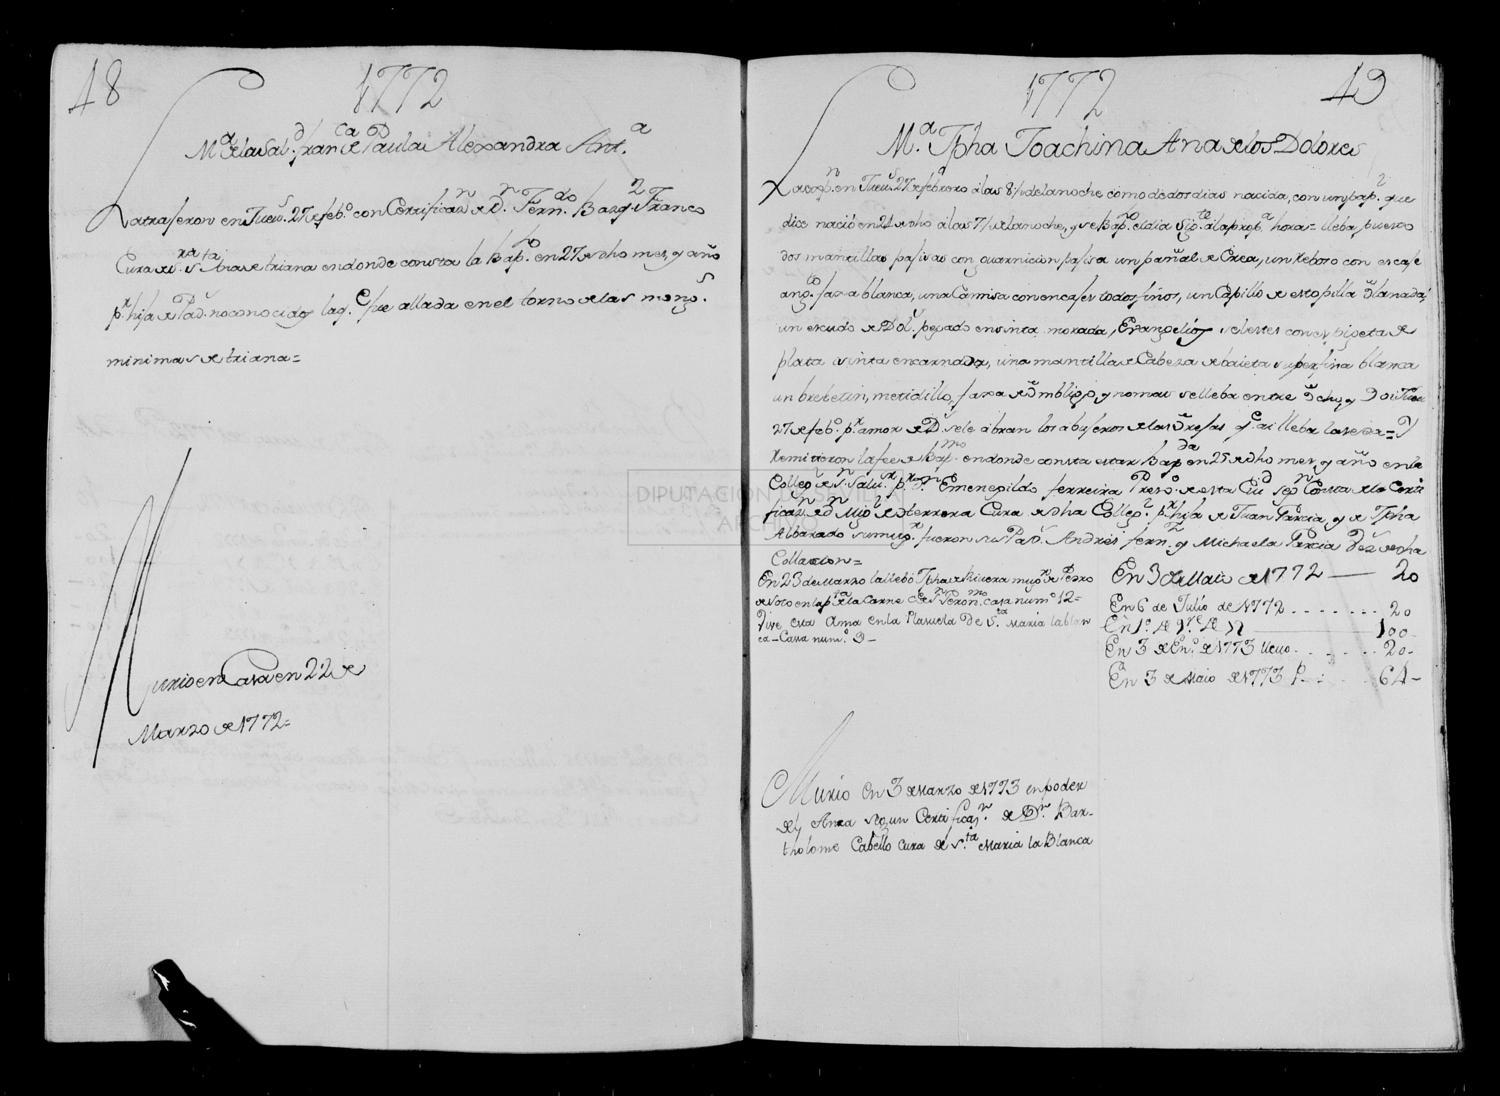 48
1772
M.ª de la Sal.d fran.ca de Paula Alexandra Ant.ª
La traxeron en Juev.s 27 de feb.º con Certificaz.n de D.n Fern.do Bazq.z Franco
Cura de s.ra s.ta Ana de triana en donde consta la Bap.º en 27 de dho mes, y año
p.r hija de Pad.s no conocidos la q.e fue allada en el torno de las monj.s
minimas de triana =
Murio en Casa en 22 de
Marzo de 1772 =
1772
49
M.ª Jpha Joachina Ana de los Dolores
La ech.n en Juev.s 27 de febrero a las 8½ de la noche como de dos dias nacida, con un pap.l que
dice nació en 24 de dho a las 7½ de la noche, y se Bap.º el dia sig.te a la prop.ª hora = lleba puesto
dos mantillas pasivas con guarnicion pasiva un pañal de Crea, un reboso con encaje
ang.to faxa blanca, una Camisa con encajes todos finos, un Capillo de estopilla
un escudo de Dol.s pegado en sinta morada, Evangelios con
plata sinta encarnada, una mantilla de Cabeza de baieta superfina blanca
un breberin, metidillo, faxa de ombligo, y nomas se lleba entre ocho, y 9 oi Juev.
27 de feb.º p.r amor de D.s se le abran los abujeros de las orejas q.e ai lleba la seda =
Remitieron la fee de Bap.mo en donde consta estar Bap.da en 25 de dho mes, y año en la
Colleg.l de S.r Salv.r p.r D.n Emenegildo ferreira Presv.º de esta Ciu.d seg.n Consta de la Certi
ficaz.n de D.n Mig.l de Herrera Cura de dha Colleg.l p.r hija de Juan Garcia, y de Jpha
Albarado su mug.r fueron sus Pad.s Andres fern.z y Michaela Garcia Vez.s de dha
Collacion =
En 23 de Marzo la llebó Jpha de Rivera mug.r de Pedro
de Soto en la p.ta de la Carne C.e de S.n Geron.mo casa num.º 12 =
Vive esta Ama en la Plasuela de S.ta Maria la blan
ca - Casa num.º 3 -
En 3 de Maio de 1772 — 20
En 6 de Julio de 1772 . . . . . . . . 20
En 1.º de 9.re de 72 — 100 -
En 3 de En.º de 1773 llevo . . . . . . . 20 -
En 3 de Maio de 1773 P. . . . . . 64 -
Murio en 3 de Marzo de 1773 en poder
del Ama segun Certificaz.n de D.n Bar-
tholome Cabello cura de S.ta Maria la Blanca
DIPUTACION DE SEVILLA
ARCHIVO